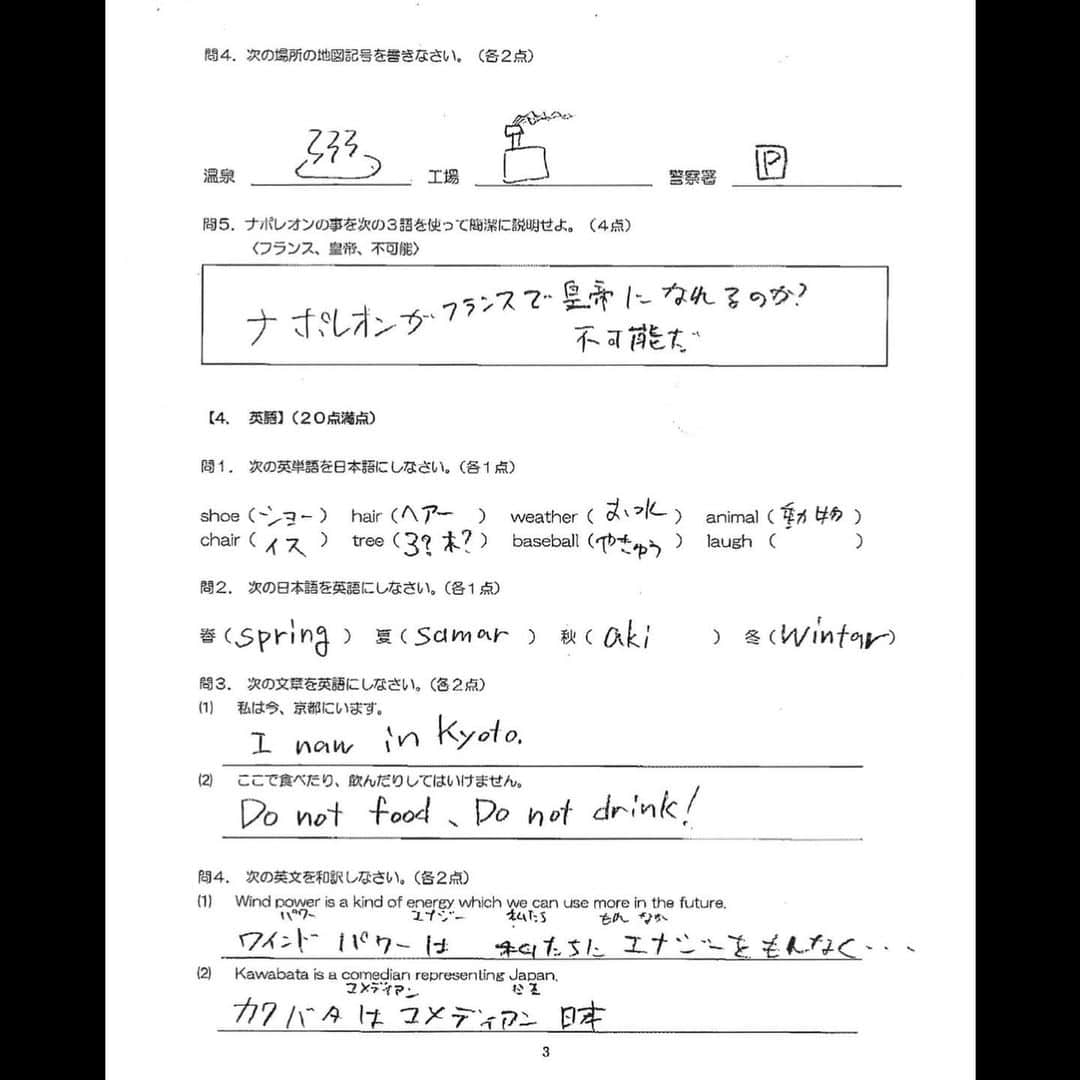 問4. 次の場所の地図記号を書きなさい。（各2点）
温泉 工場 警察署 P
問5. ナポレオンの事を次の3語を使って簡潔に説明せよ。（4点）
〈フランス、皇帝、不可能〉
ナポレオンがフランスで皇帝になれるのか?
不可能だ
【4. 英語】（20点満点）
問1. 次の英単語を日本語にしなさい。（各1点）
shoe（ショー） hair（ヘアー） weather（お水） animal（動物）
chair（イス） tree（3?木?） baseball（やきゅう） laugh（ ）
問2. 次の日本語を英語にしなさい。（各1点）
春（spring） 夏（samar） 秋（aki） 冬（wintar）
問3. 次の文章を英語にしなさい。（各2点）
(1) 私は今、京都にいます。
I naw in Kyoto.
(2) ここで食べたり、飲んだりしてはいけません。
Do not food、Do not drink!
問4. 次の英文を和訳しなさい。（各2点）
(1) Wind power is a kind of energy which we can use more in the future.
パワー エナジー 私たち もれ なか
ワインド パワーは 私たちに エナジーをもれなく・・・
(2) Kawabata is a comedian representing Japan.
コメディアン
カワバタは コメディアン 日本
3